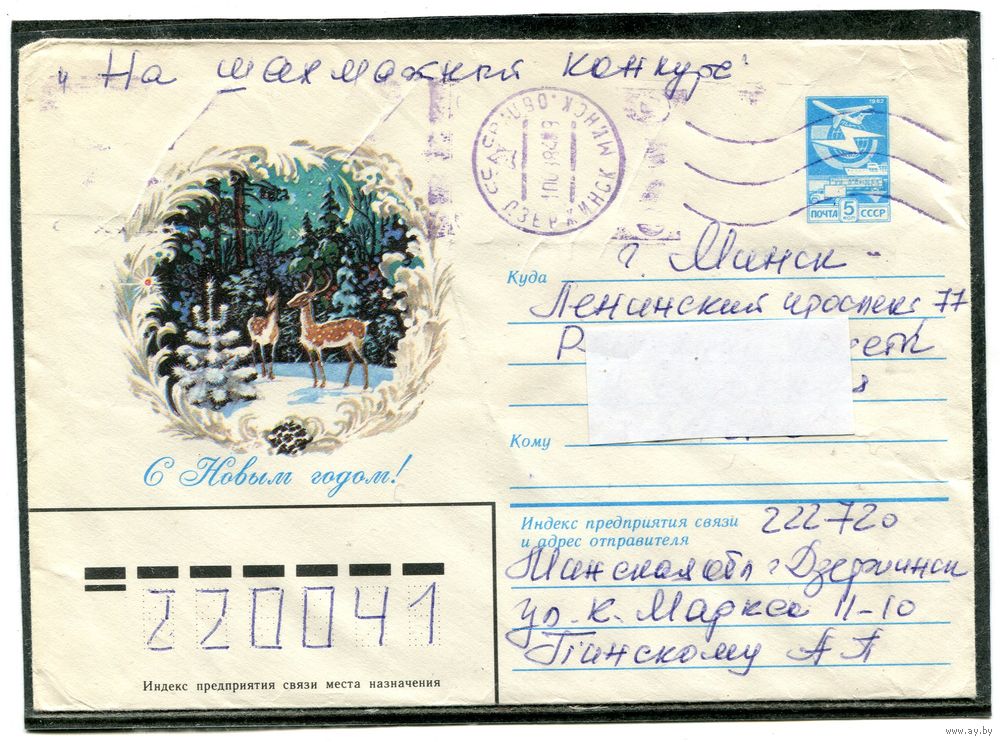 "На шахматный конкурс"
1982
ПОЧТА 5 КОП СССР
ДЗЕРЖИНСК МИНСК.ОБЛ.
Куда г. Минск
Ленинский проспект 77
Кому
С Новым годом!
Индекс предприятия связи 222720
и адрес отправителя
Минская обл г Дзержинск
ул. К. Маркса 11-10
Пинскому А А
220041
Индекс предприятия связи места назначения
www.ay.by